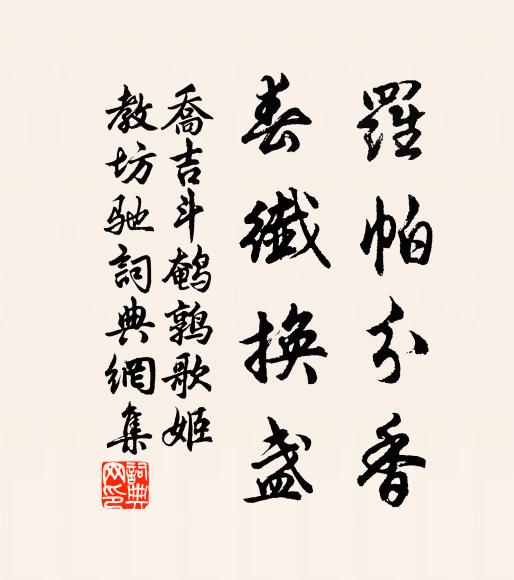 羅帕分香
春纖換盞
喬吉斗鵪鶉歌姬
教坊馳詞典網集
詞典网印